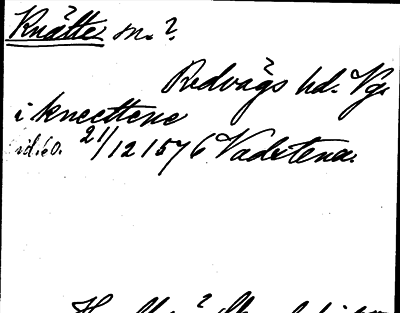 Knätte sn.?
Redvägs hd. Vg.
i kneettene
id. 60. 21/12 1576 Vadstena.